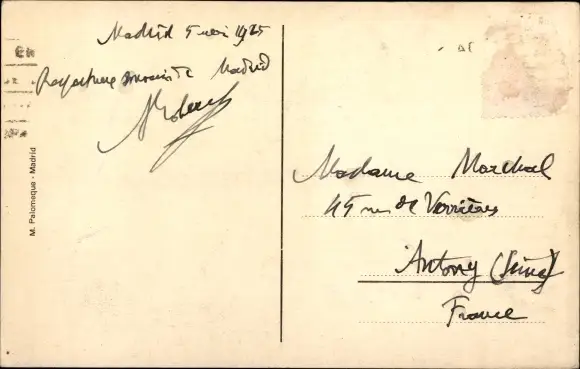 Madrid 5 mai 1925
Madrid
M. Palomeque - Madrid
Madame Marchal
45 rue de Verrières
Antony (Seine)
France